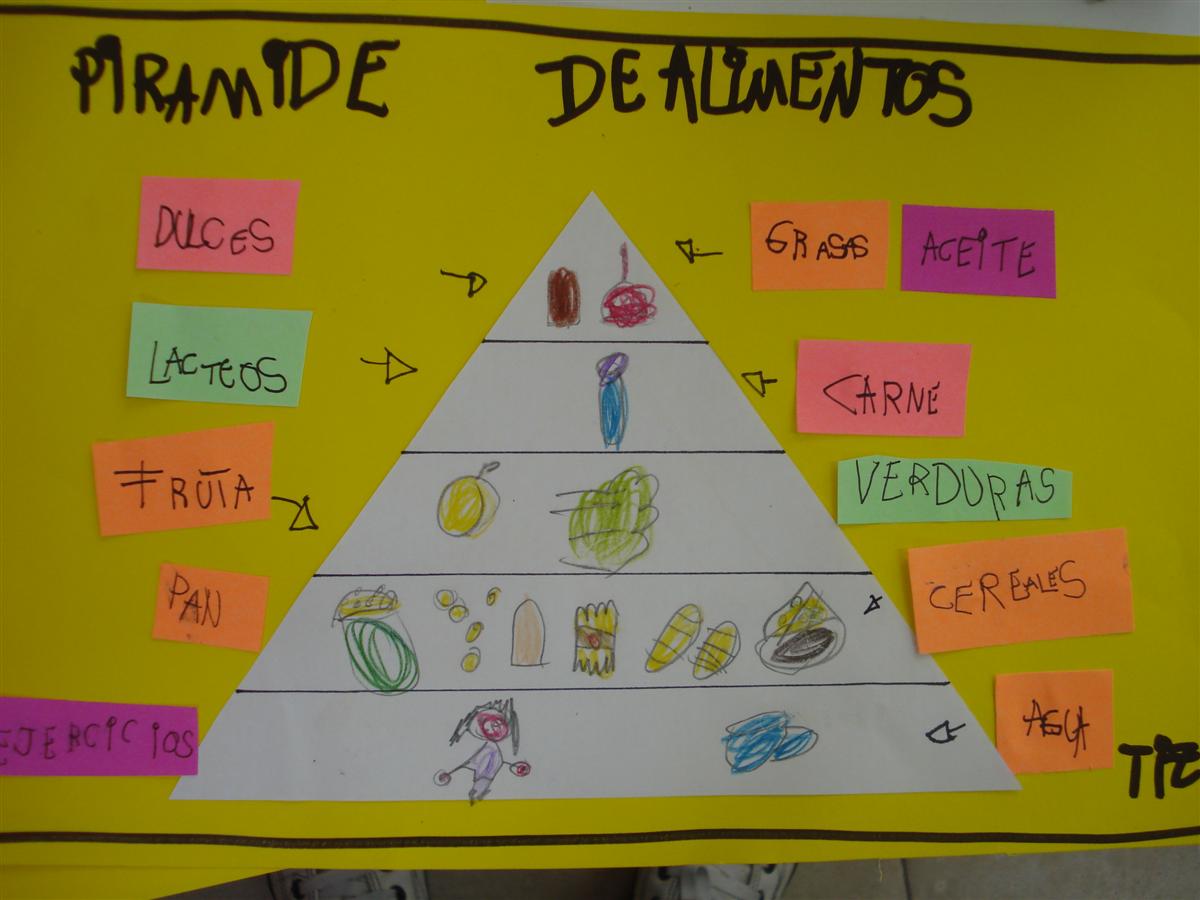 PIRAMIDE DE ALIMENTOS
DULCES
GRASAS
ACEITE
LACTEOS
CARNE
FRUTA
VERDURAS
PAN
CEREALES
EJERCICIOS
AGUA